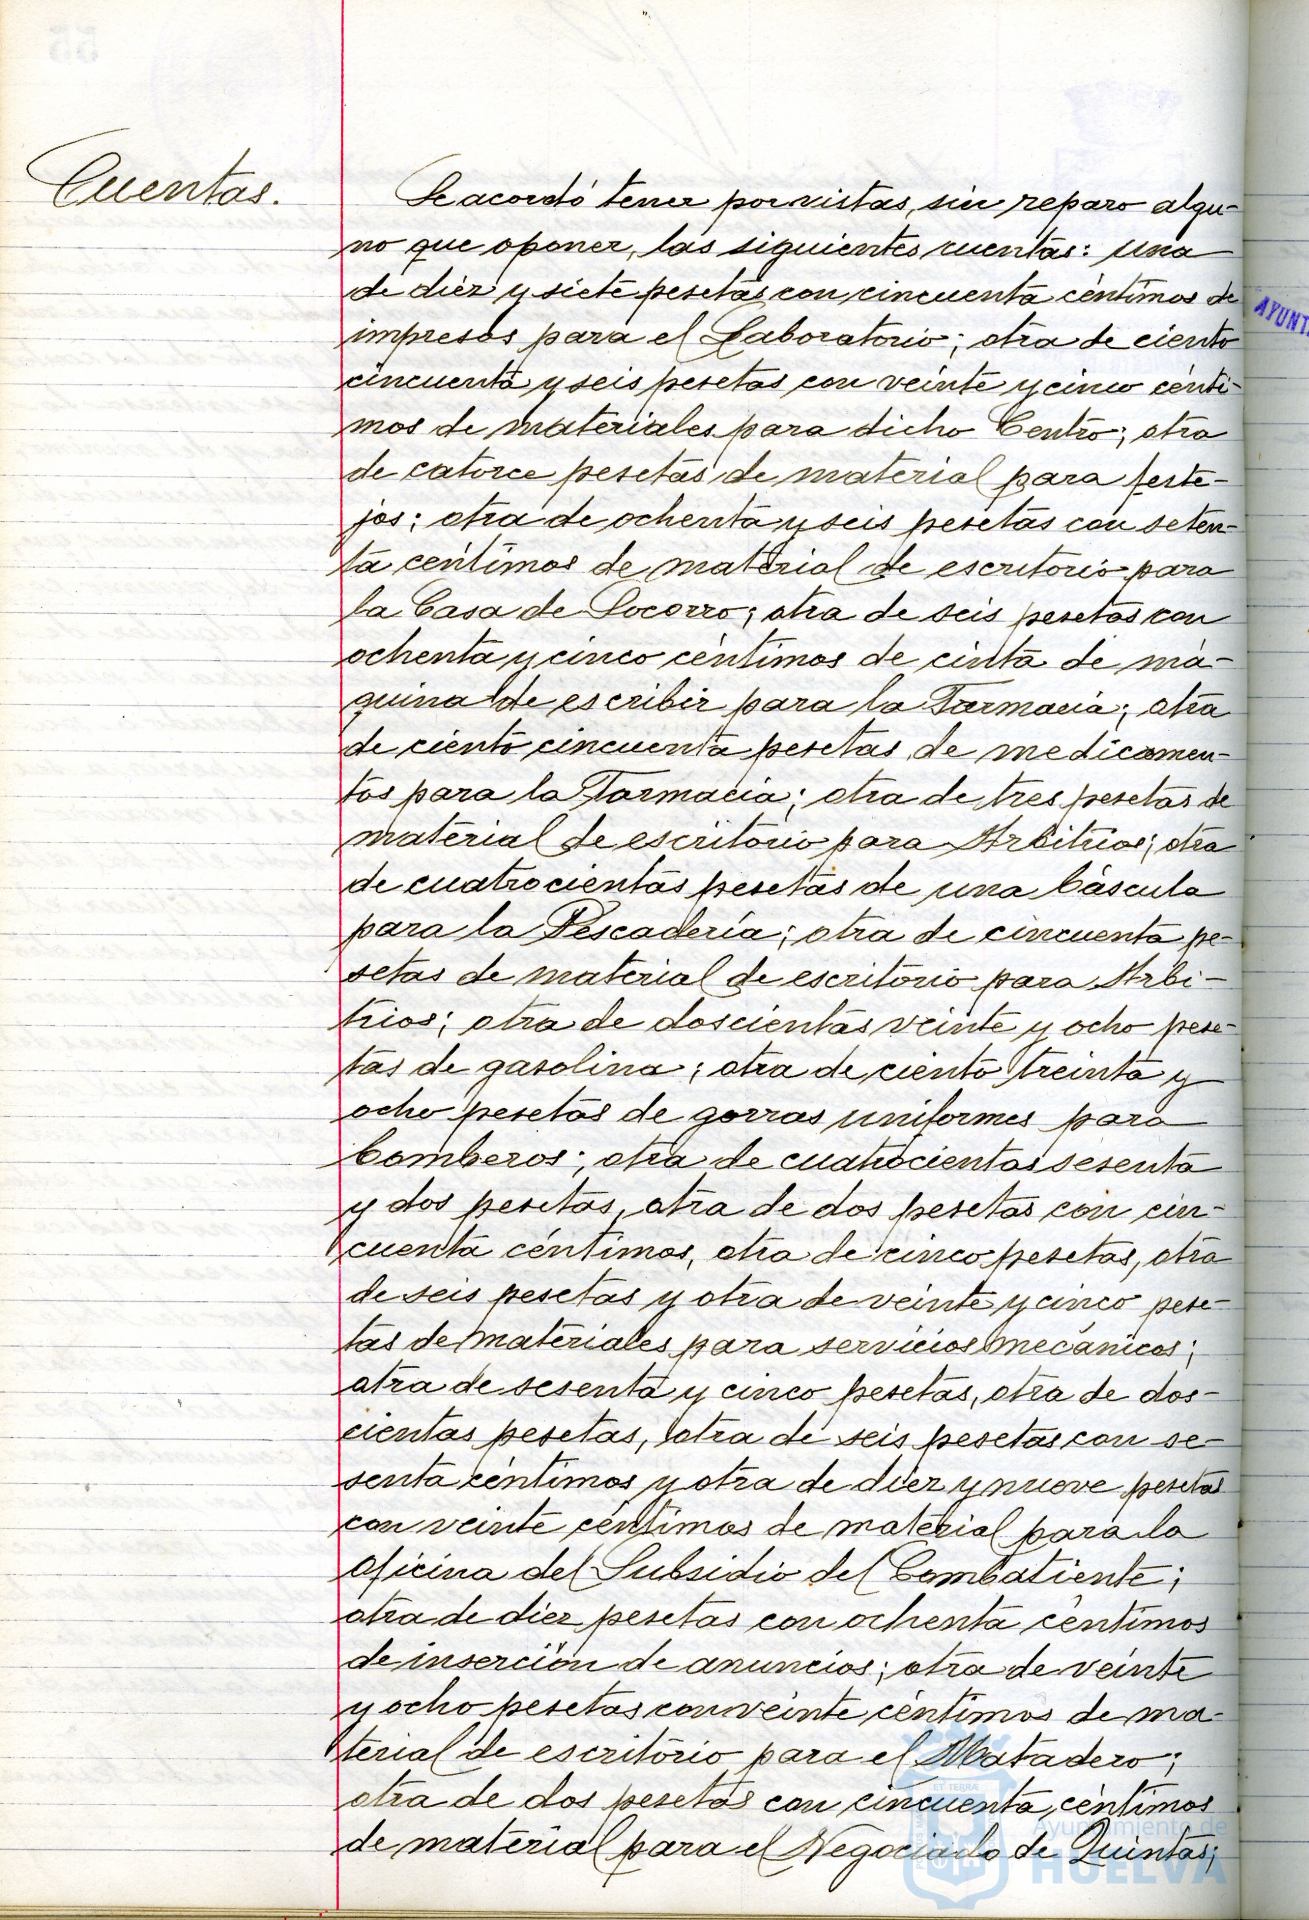 Cuentas.
Se acordó tener por vistas, sin reparo algu-
no que oponer, las siguientes cuentas: una
de diez y siete pesetas con cincuenta céntimos de
impresos para el Laboratorio; otra de ciento
cincuenta y seis pesetas con veinte y cinco cénti-
mos de materiales para dicho Centro; otra
de catorce pesetas de material para feste-
jos; otra de ochenta y seis pesetas con seten-
ta céntimos de material de escritorio para
la Casa de Socorro; otra de seis pesetas con
ochenta y cinco céntimos de cinta de má-
quina de escribir para la Farmacia; otra
de ciento cincuenta pesetas de medicamen-
tos para la Farmacia; otra de tres pesetas de
material de escritorio para Arbitrios; otra
de cuatrocientas pesetas de una báscula
para la Pescadería; otra de cincuenta pe-
setas de material de escritorio para Arbi-
trios; otra de doscientas veinte y ocho pese-
tas de gasolina; otra de ciento treinta y
ocho pesetas de gorras uniformes para
bomberos; otra de cuatrocientas sesenta
y dos pesetas, otra de dos pesetas con cin-
cuenta céntimos, otra de cinco pesetas, otra
de seis pesetas y otra de veinte y cinco pese-
tas de materiales para servicios mecánicos;
otra de sesenta y cinco pesetas, otra de dos-
cientas pesetas, otra de seis pesetas con se-
senta céntimos y otra de diez y nueve pesetas
con veinte céntimos de material para la
oficina del Subsidio del Combatiente;
otra de diez pesetas con ochenta céntimos
de inserción de anuncios; otra de veinte
y ocho pesetas con veinte céntimos de ma-
terial de escritorio para el Matadero;
otra de dos pesetas con cincuenta céntimos
de material para el Negociado de Quintas;
AYUNT
ET TERRÆ
Ayuntamiento de
HUELVA